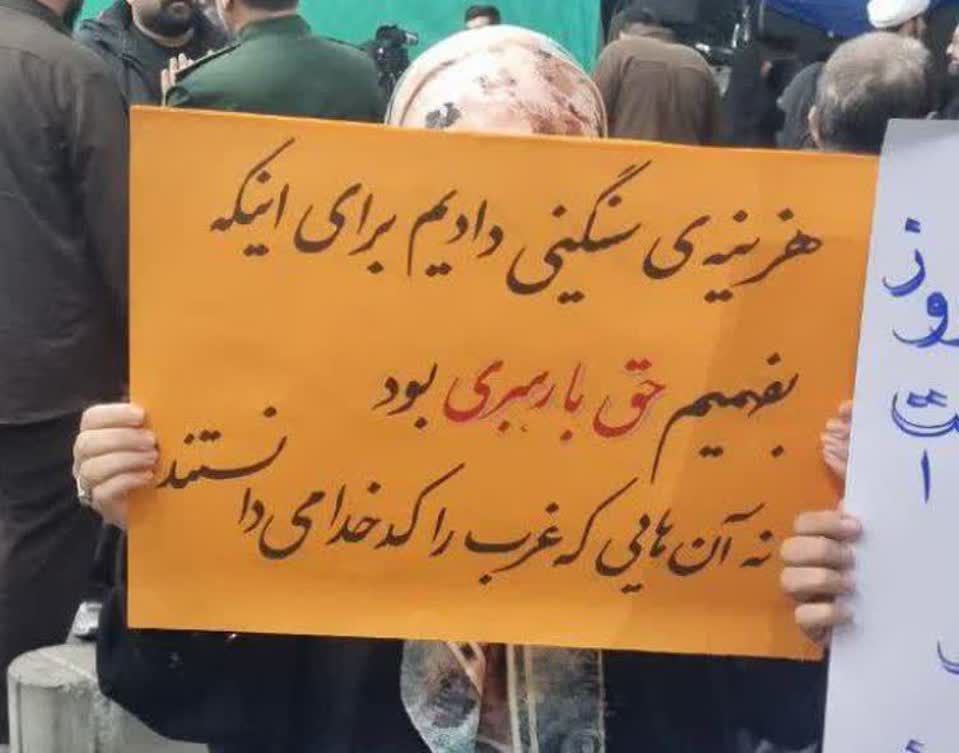 هزینه‌ی سنگینی دادیم برای اینکه
بفهمیم حق با رهبری بود
نه آن‌هایی که غرب را کدخدا می‌دانستند
روز
ت
ا